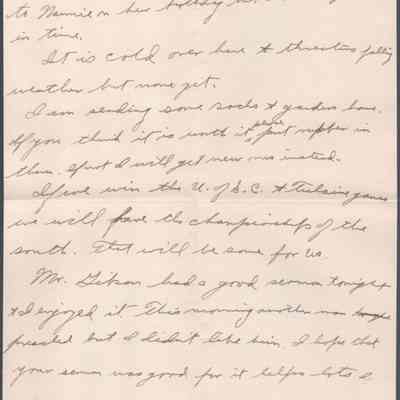 to Nannie on her birthday
in time.
It is cold over here & threatens falling
weather but none yet.
I am sending some socks & garters home.
If you think it is worth it please put rubber in
them. If not I will get new ones instead.
If we win the U. of S. C. & Tulane games
we will have the championship of the
south. That will be some for us.
Mr. Gibson had a good sermon tonight
& I enjoyed it. This morning another man
preached but I didn't like him. I hope that
your sermon was good for it helps lots &